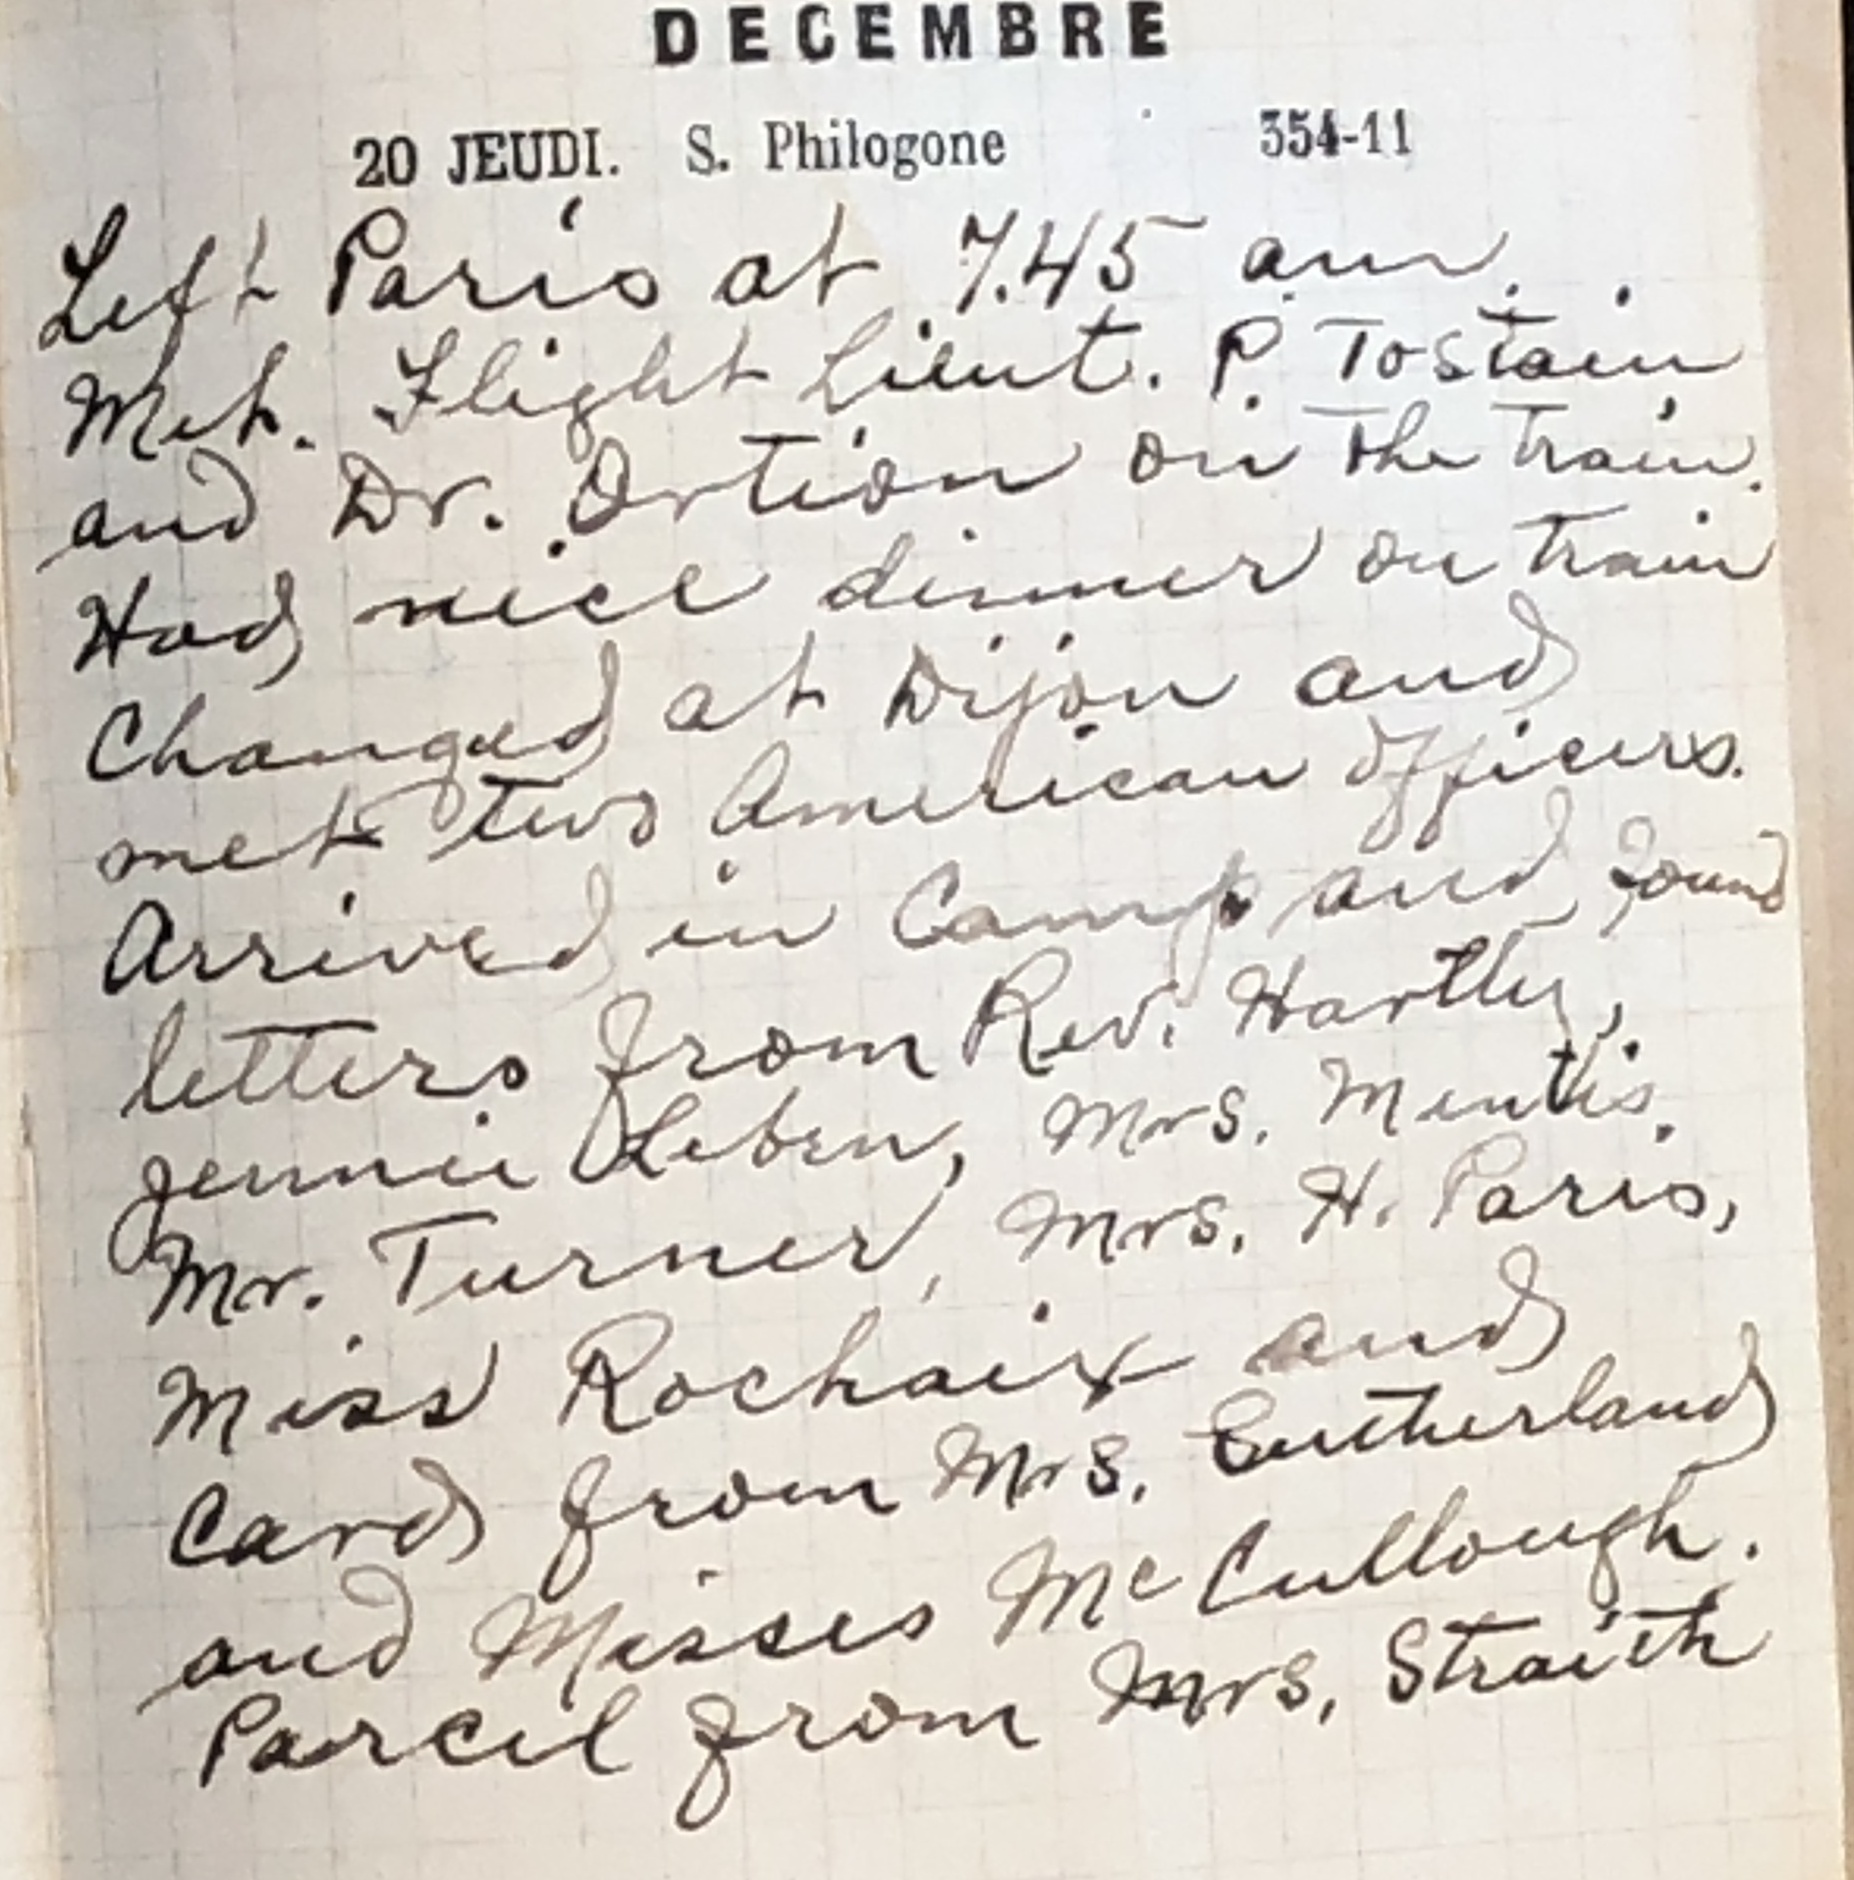 DECEMBRE
20 JEUDI. S. Philogone 354-11
Left Paris at 7.45 am.
Met. Flight Lieut. P. Tostain
and Dr. Ortion on the train.
Had nice dinner on train
Changed at Dijon and
met two American officers.
Arrived in Camp and found
letters from Rev. Hartley,
Jennie Leben, Mrs. Menthis.
Mr. Turner, Mrs. H. Paris,
Miss Rochaix and
Card from Mrs. Sutherland
and Misses McCullough.
Parcel from Mrs. Straith